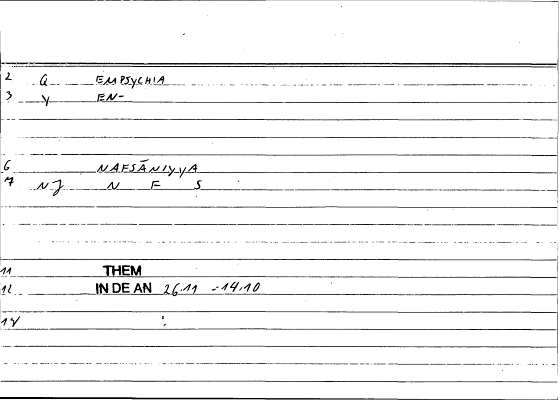 2 Q EMPSYCHIA
3 Y EN-
6 NAFSĀNIYYA
7 NJ N F S
11 THEM
12 IN DE AN 26.11 -14.10
14 :